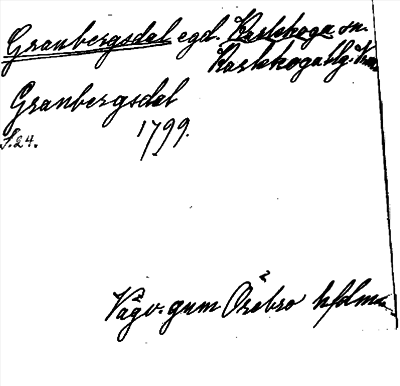 Granbergsdal egd. Karlskoga sn.
Karlskoga blg. Vrm
Granbergsdal
S.24. 1799.
Vägv. gnm Örebro h/dmen